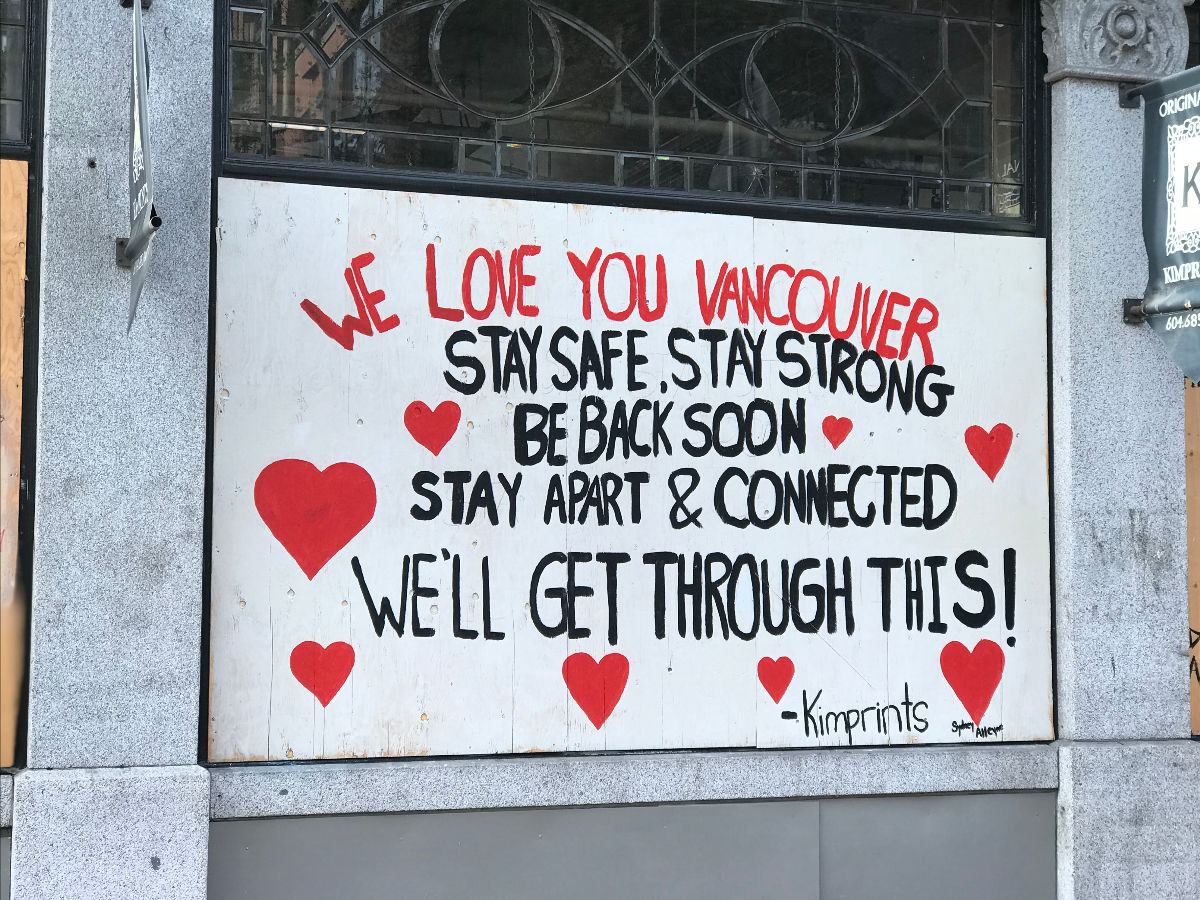 WE LOVE YOU VANCOUVER
STAY SAFE, STAY STRONG
BE BACK SOON
STAY APART & CONNECTED
WE'LL GET THROUGH THIS!
-Kimprints
Sydney
ORIGINA
K
KIMPRI
604.685